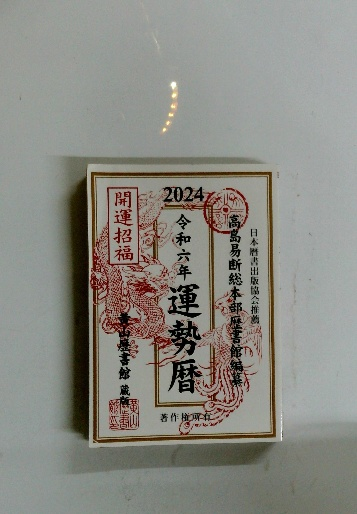 2024
日本暦書出版協会推薦
高島易断総本部歴書館編纂
令和六年
運勢暦
著作権所有
開運招福
山歴書館 蔵版